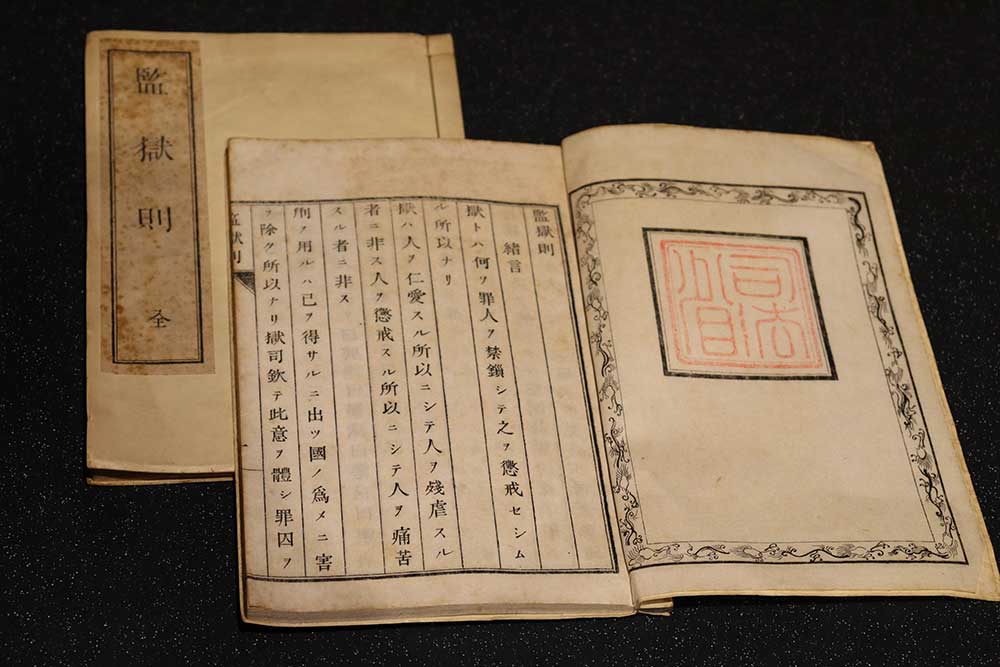 監獄則
全
司法
省
監獄則
緒言
獄トハ何ソ罪人ヲ禁鎖シテ之ヲ懲戒セシム
ル所以ナリ
獄ハ人ヲ仁愛スル所以ニシテ人ヲ殘虐スル
者ニ非ス人ヲ懲戒スル所以ニシテ人ヲ痛苦
スル者ニ非ス
刑ヲ用ルハ已ヲ得サルニ出ツ國ノ爲メニ害
ヲ除ク所以ナリ獄司欽テ此意ヲ體シ罪囚ヲ
監獄則